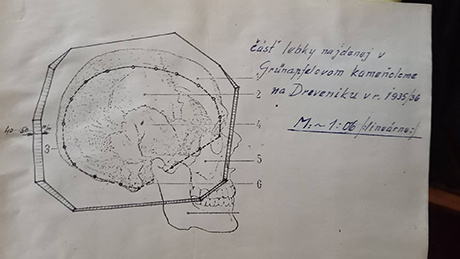 Časť lebky najdenej v
Grünapfelovom kameňolome
na Dreveníku v r. 1935/36
M = ~ 1:06 /lineárne/
2
4
40-50
3
5
6